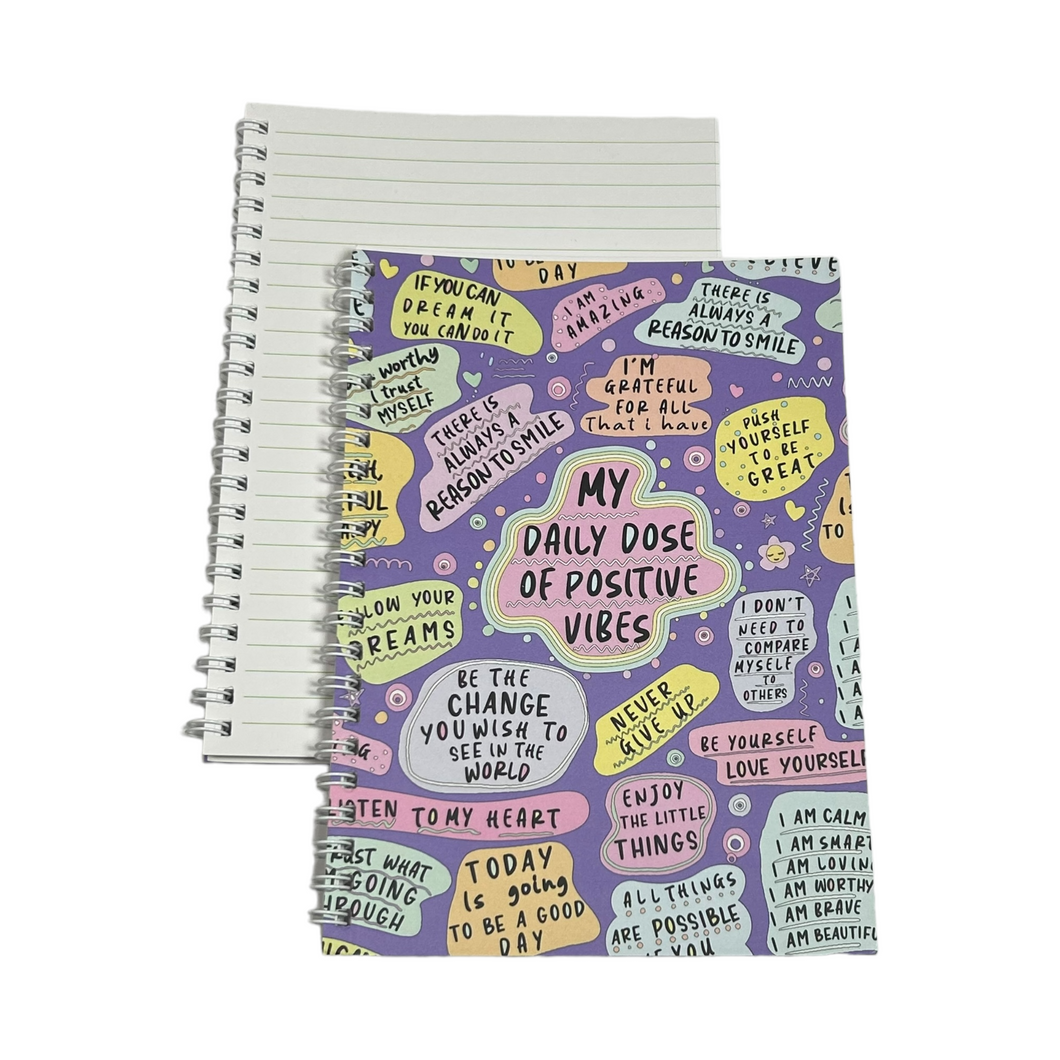 DAY
IF YOU CAN
DREAM IT
YOU CAN DO IT
I AM
AMAZING
THERE IS
ALWAYS A
REASON TO SMILE
worthy
I trust
MYSELF
THERE IS
ALWAYS A
REASON TO SMILE
I'M
GRATEFUL
FOR ALL
That i have
PUSH
YOURSELF
TO BE
GREAT
MY
DAILY DOSE
OF POSITIVE
VIBES
TO
YOUR
DREAMS
I DON'T
NEED TO
COMPARE
MYSELF
TO
OTHERS
I
I
I
I
I
BE THE
CHANGE
YOU WISH TO
SEE IN THE
WORLD
NEVER
GIVE UP
BE YOURSELF
LOVE YOURSELF
TO MY HEART
ENJOY
THE LITTLE
THINGS
I AM CALM
I AM SMART
I AM LOVIN
I AM WORTHY
I AM BRAVE
I AM BEAUTIFU
WHAT
GOING
TODAY
Is going
TO BE A GOOD
DAY
ALL THINGS
ARE POSSIBLE
IF YOU